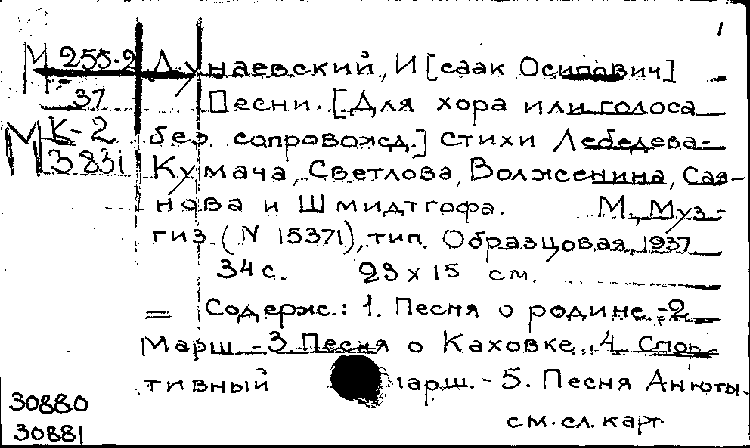 1
М 255-2 Дунаевский, И[саак Осипович]
Г-37 Песни. [Для хора или голоса
М К-2 без сопровожд.] стихи Лебедева-
М 3831 Кумача, Светлова, Волженина, Сая-
нова и Шмидтгофа. М., Муз-
гиз (N 15371), тип. Образцовая, 1937
34 с. 23 х 15 см.
= Содерж.: 1. Песня о родине. -2.
Марш. -3. Песня о Каховке. 4. Спор-
тивный марш. - 5. Песня Анюты.
30880 см. сл. карт
30881